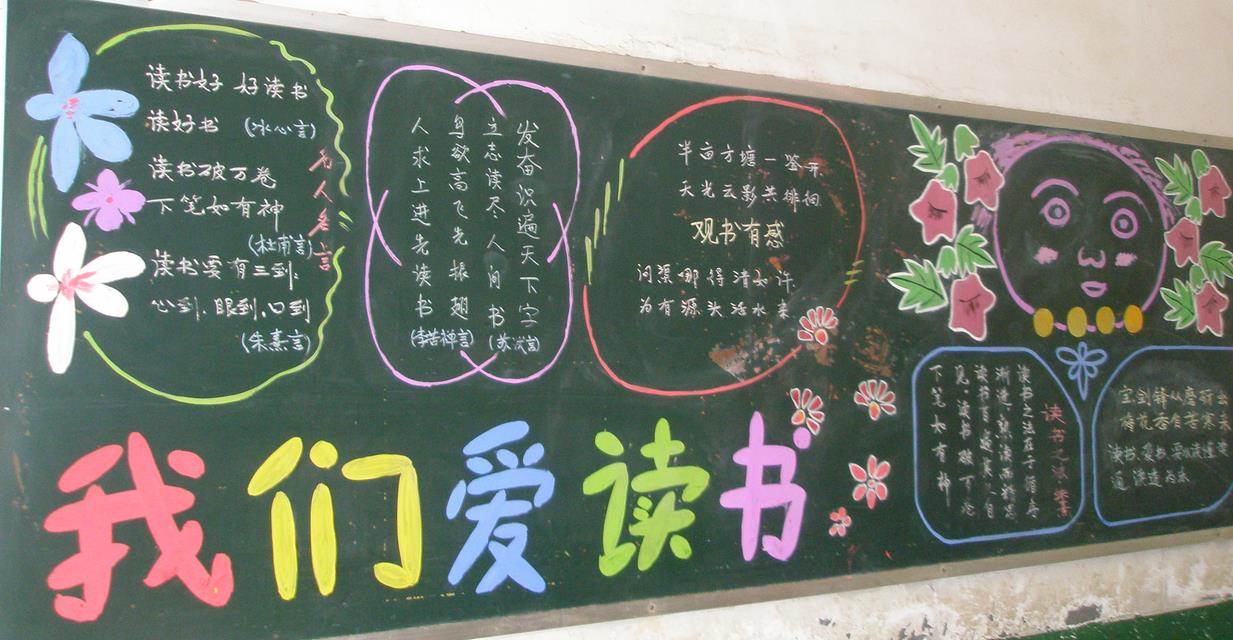 读书好 好读书
读好书 (冰心言)
读书破万卷
下笔如有神
(杜甫言)
读书要有三到:
心到、眼到、口到
(朱熹言)
名人名言
发奋识遍天下字
立志读尽人间书
(苏轼言)
鸟欲高飞先振翅
人求上进先读书
(李苦禅言)
半亩方塘一鉴开
天光云影共徘徊
观书有感
问渠哪得清如许
为有源头活水来
读书之法 朱熹
读书之法在于循序
渐进熟读而精思
读书百遍其义自
见读书破万卷
下笔如有神
宝剑锋从磨砺出
梅花香自苦寒来
读书、爱书
我们爱读书